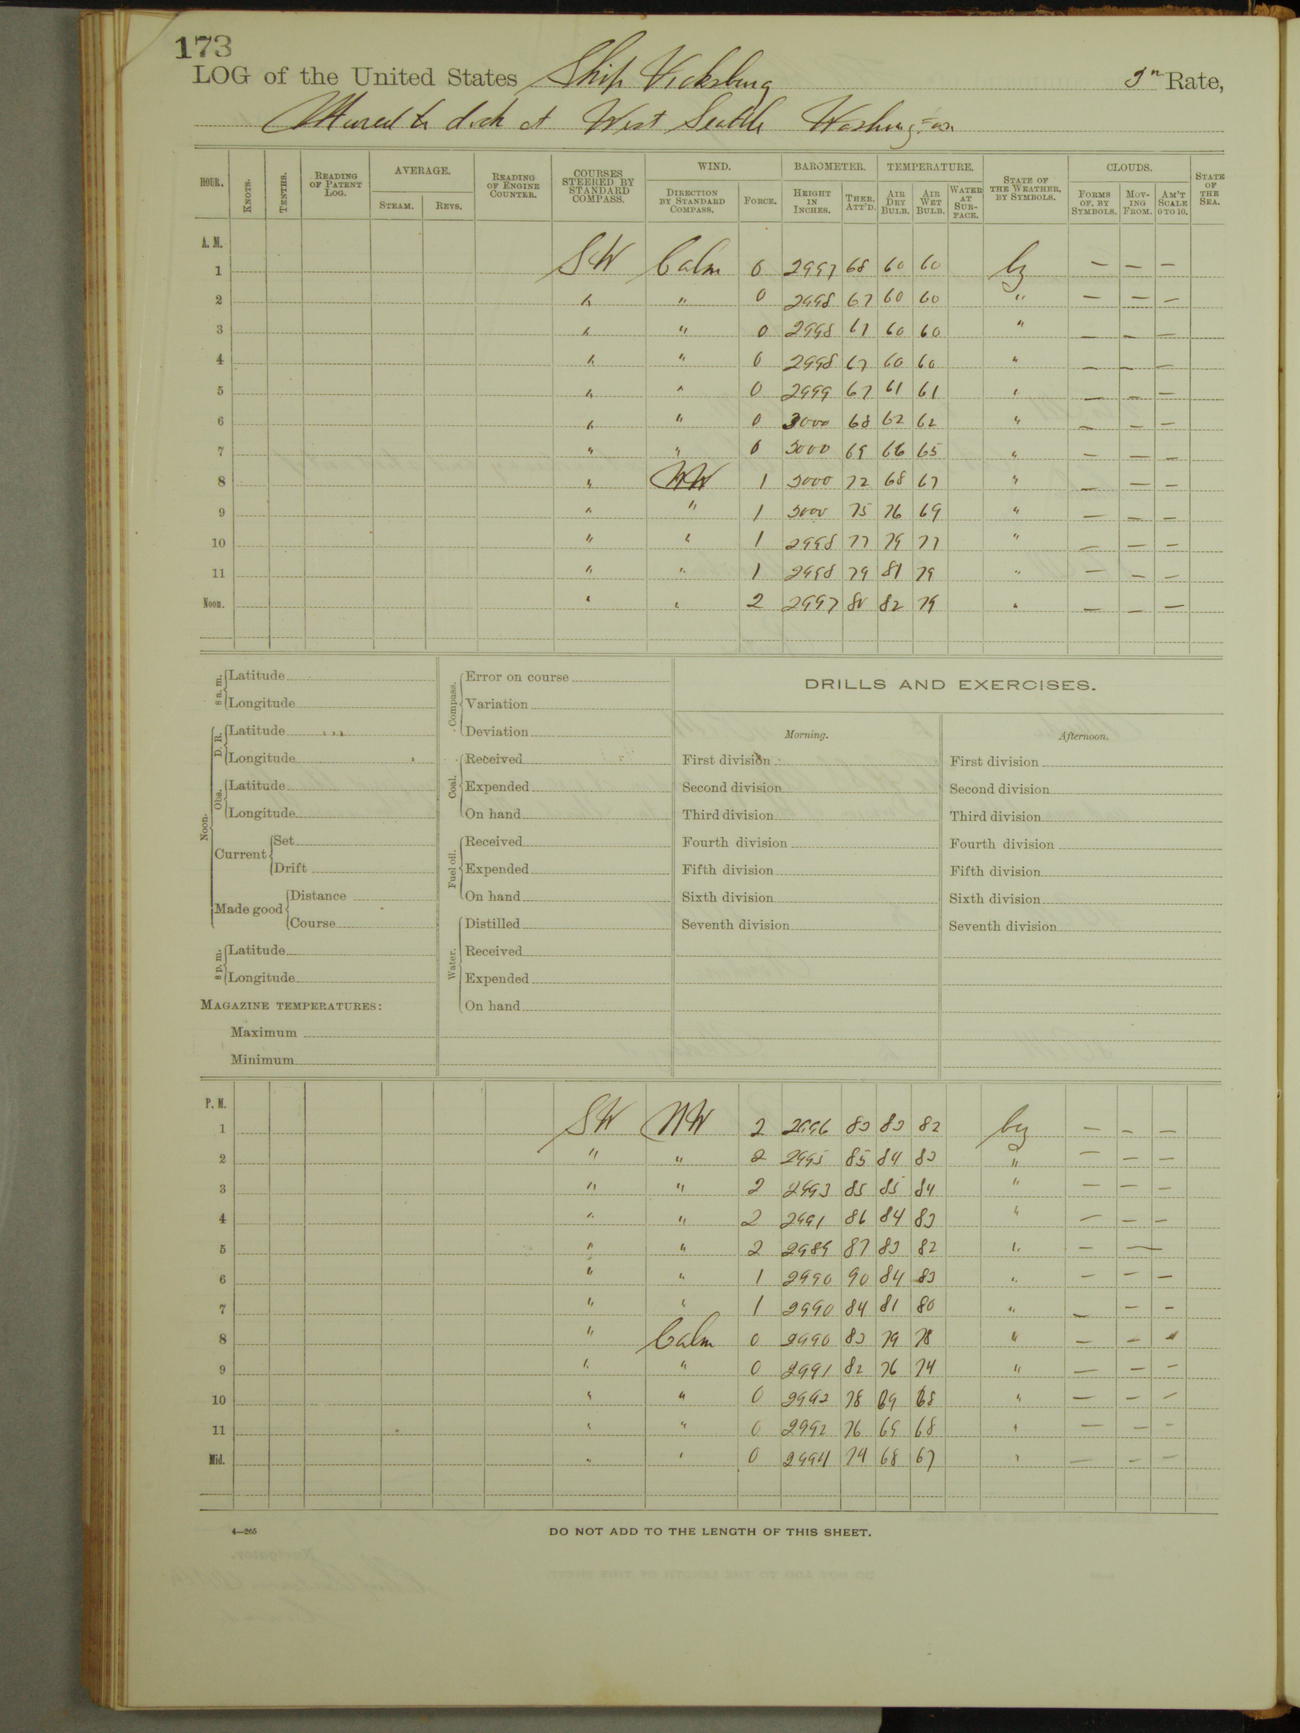 173
LOG of the United States Ship Vicksburg 3rd Rate,
Moored to dock at West Seattle Washington
HOUR. KNOTS. TENTHS. READING OF PATENT LOG. AVERAGE. STEAM. REVS. READING OF ENGINE COUNTER. COURSES STEERED BY STANDARD COMPASS. WIND. DIRECTION BY STANDARD COMPASS. FORCE. BAROMETER. HEIGHT IN INCHES. THER. ATT'D. TEMPERATURE. AIR DRY BULB. AIR WET BULB. WATER AT SURFACE. STATE OF THE WEATHER, BY SYMBOLS. CLOUDS. FORMS OF, BY SYMBOLS. MOVING FROM. AM'T SCALE 0 TO 10. STATE OF THE SEA.
A. M.
1 SW Calm 0 2997 68 60 60 bz — — —
2 " " 0 2998 67 60 60 " — — —
3 " " 0 2998 67 60 60 " — — —
4 " " 0 2998 67 60 60 " — — —
5 " " 0 2999 67 61 61 " — — —
6 " " 0 3000 68 62 62 " — — —
7 " " 0 3000 69 66 65 " — — —
8 " NW 1 3000 72 68 67 " — — —
9 " " 1 3000 75 76 69 " — — —
10 " " 1 2998 77 79 77 " — — —
11 " " 1 2998 79 81 79 " — — —
Noon. " " 2 2997 80 82 79 " — — —
8 a. m. Latitude
Longitude
Noon. D. R. Latitude
Longitude
Obs. Latitude
Longitude
Current Set
Drift
Made good Distance
Course
8 p. m. Latitude
Longitude
MAGAZINE TEMPERATURES:
Maximum
Minimum
Compass. Error on course
Variation
Deviation
Coal. Received
Expended
On hand
Fuel oil. Received
Expended
On hand
Water. Distilled
Received
Expended
On hand
DRILLS AND EXERCISES.
Morning.
First division
Second division
Third division
Fourth division
Fifth division
Sixth division
Seventh division
Afternoon.
First division
Second division
Third division
Fourth division
Fifth division
Sixth division
Seventh division
P. M.
1 SW NW 2 2996 83 83 82 bz — — —
2 " " 2 2995 85 84 83 " — — —
3 " " 2 2993 85 85 84 " — — —
4 " " 2 2991 86 84 83 " — — —
5 " " 2 2989 87 83 82 " — —
6 " " 1 2990 90 84 83 " — — —
7 " " 1 2990 84 81 80 " — — —
8 " Calm 0 2990 83 79 78 " — — —
9 " " 0 2991 82 76 74 " — — —
10 " " 0 2992 78 69 68 " — — —
11 " " 0 2992 76 69 68 " — — —
Mid. " " 0 2994 74 68 67 " — — —
4—265
DO NOT ADD TO THE LENGTH OF THIS SHEET.